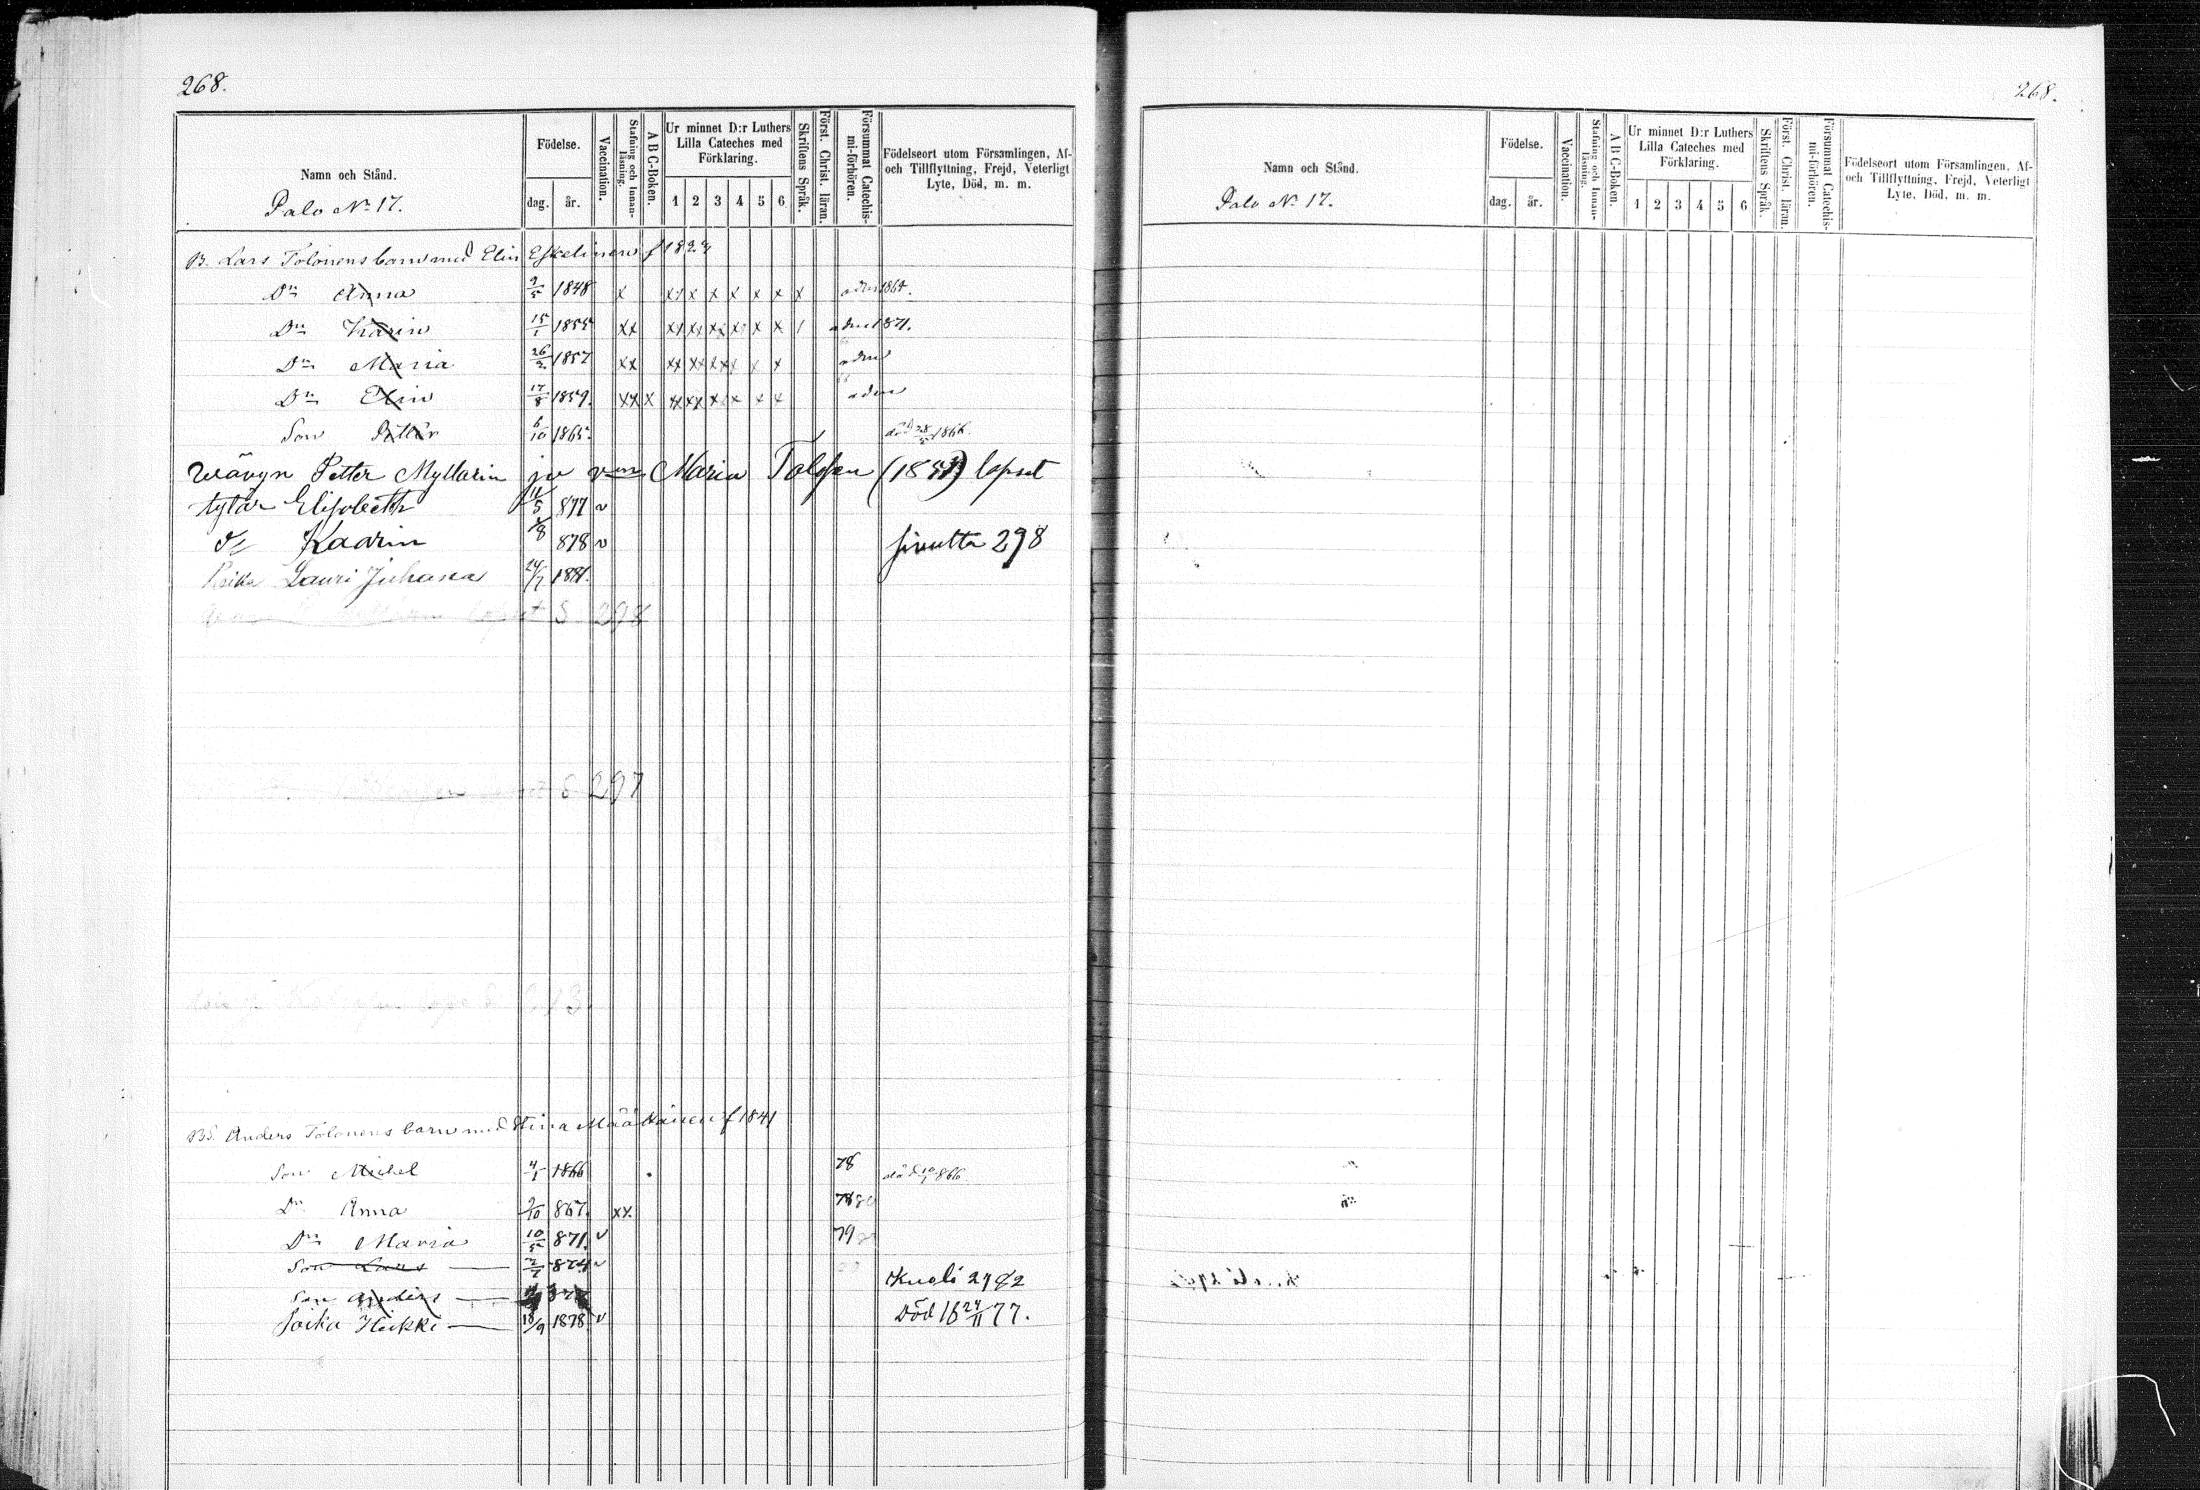 268.
Namn och Stånd.
Palo No. 17.
Födelse.
dag. år.
Vaccination.
Stafning och Innanläsning.
A B C-Boken.
Ur minnet D:r Luthers Lilla Cateches med Förklaring.
1 2 3 4 5 6
Skriftens Språk.
Först. Christ. läran.
Försummat Catechismi-förhören.
Födelseort utom Församlingen, Af- och Tillflyttning, Frejd, Veterligt Lyte, Död, m. m.
B. Lars Tolonens barn med Elin Eskelinen f 182
Dr Anna 2/5 1848 x xx x x x x x x adm 1864.
Dr Karin 15/1 1855 xx xx xx xx xx x x / adm 1871.
Dr Maria 26/2 1857 xx xx xx xx x x adm
Dr Elin 17/8 1859. xx x xx xx x x x x adm
Son Petter 6/10 1865. död 28/5 1866.
Wävyn Petter Myllärin ja vmn Maria Tolosen (1857) lapset
tytär Elisabeth 11/5 877 v
Dr Kaarin 8 878 v sivutta 298
Poika Lauri Juhana 24/7 1881.
lapset S. 298
S 297
613.
BS. Anders Tolonens barn med Stina Määttäinen f 1841
Son Michel 4/1 1866 78 död 10/1 866.
Dr Anna 2/10 867. xx. 78 80
Dr Maria 10/5 871. v 79
Son Lars 2/7 874 v Kuoli 29 82
Son Anders Död 16 24/11 77.
Poika Heikki 18/9 1878 v
268.
Namn och Stånd.
Palo No. 17.
Födelse.
dag. år.
Vaccination.
Stafning och Innanläsning.
A B C-Boken.
Ur minnet D:r Luthers Lilla Cateches med Förklaring.
1 2 3 4 5 6
Skriftens Språk.
Först. Christ. läran.
Försummat Catechismi-förhören.
Födelseort utom Församlingen, Af- och Tillflyttning, Frejd, Veterligt Lyte, Död, m. m.